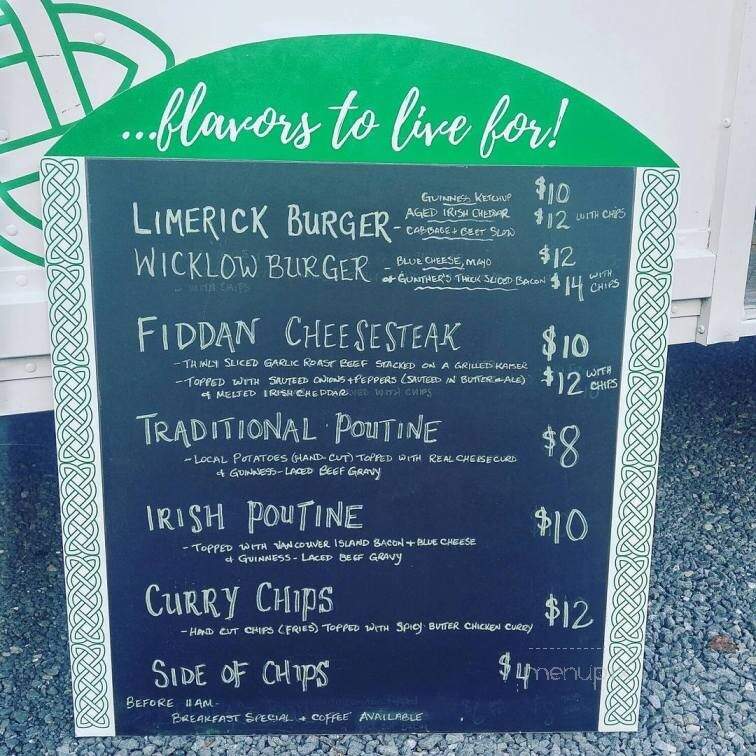 ...flavors to live for!
GUINNESS KETCHUP $10
LIMERICK BURGER - AGED IRISH CHEDDAR $12 WITH CHIPS
CABBAGE + BEET SLAW
WICKLOW BURGER - BLUE CHEESE, MAYO $12
+ GUNTHER'S THICK SLICED BACON $14 WITH CHIPS
FIDDAN CHEESESTEAK $10
- THINLY SLICED GARLIC ROAST BEEF STACKED ON A GRILLED KAISER
- TOPPED WITH SAUTEED ONIONS + PEPPERS (SAUTEED IN BUTTER + ALE) $12 WITH CHIPS
+ MELTED IRISH CHEDDAR
TRADITIONAL POUTINE $8
- LOCAL POTATOES (HAND-CUT) TOPPED WITH REAL CHEESE CURD
+ GUINNESS-LACED BEEF GRAVY
IRISH POUTINE $10
- TOPPED WITH VANCOUVER ISLAND BACON + BLUE CHEESE
+ GUINNESS-LACED BEEF GRAVY
CURRY CHIPS $12
- HAND CUT CHIPS (FRIES) TOPPED WITH SPICY BUTTER CHICKEN CURRY
SIDE OF CHIPS $4
menup
BEFORE 11AM -
BREAKFAST SPECIAL + COFFEE AVAILABLE